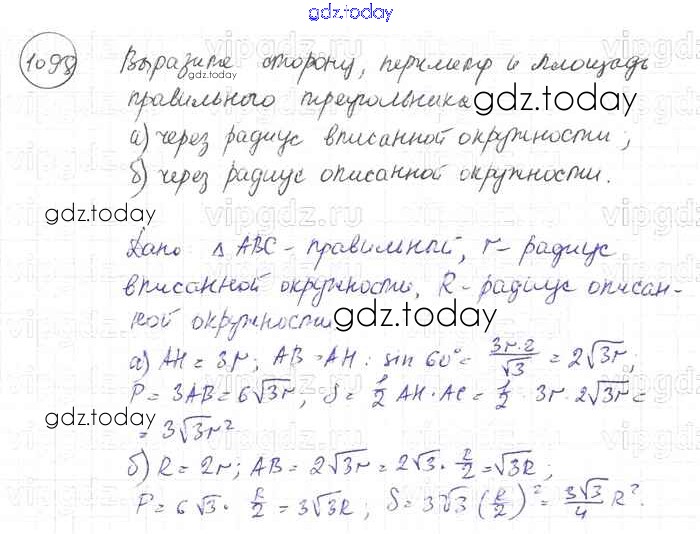 gdz.today
1098 Выразите сторону, периметр и площадь
правильного треугольника gdz.today
а) через радиус вписанной окружности;
б) через радиус описанной окружности.
gdz.today
Дано: Δ ABC - правильный, r - радиус
вписанной окружности, R - радиус описан-
ной окружности gdz.today
а) AH = 3r; AB = AH : sin 60° = 3r·2/√3 = 2√3r;
P = 3AB = 6√3r; S = 1/2 AH·AC = 1/2 · 3r · 2√3r =
gdz.today
= 3√3r²
б) R = 2r; AB = 2√3r = 2√3 · R/2 = √3R;
P = 6√3 · R/2 = 3√3R; S = 3√3 (R/2)² = 3√3/4 R².
gdz.today